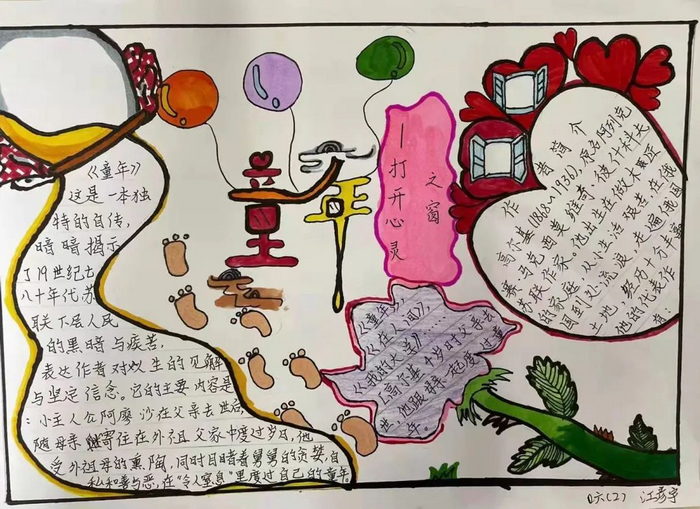 童年
—打开心灵
之窗
《童年》
这是一本独
特的自传,
暗暗揭示
了19世纪七
八十年代苏
联下层人民
的黑暗与疾苦,
表达作者对双生的见解
与坚定信念。它的主要内容是
:小主人公阿廖沙在父亲去世后,
随母亲寄往在外祖父家中度过岁月,他
受外祖母的熏陶,同时目睹着舅舅的贪婪,自
私和善与恶,在"令人窒息"里度过自己的童年。
《童年》,
《在人间》,
《我的大学》,
高尔基4岁时父亲去
世,他跟母亲一起度过童
年。
作者简介
高尔基(1868~1936),原名阿列克
赛·马克西莫维奇·彼什科夫
苏联作家。他出生在做木匠
的家庭,从小生活
国到处流浪,走遍俄国
土地,经历十分丰富
他的代表作
有
口六(2) 江彦宇